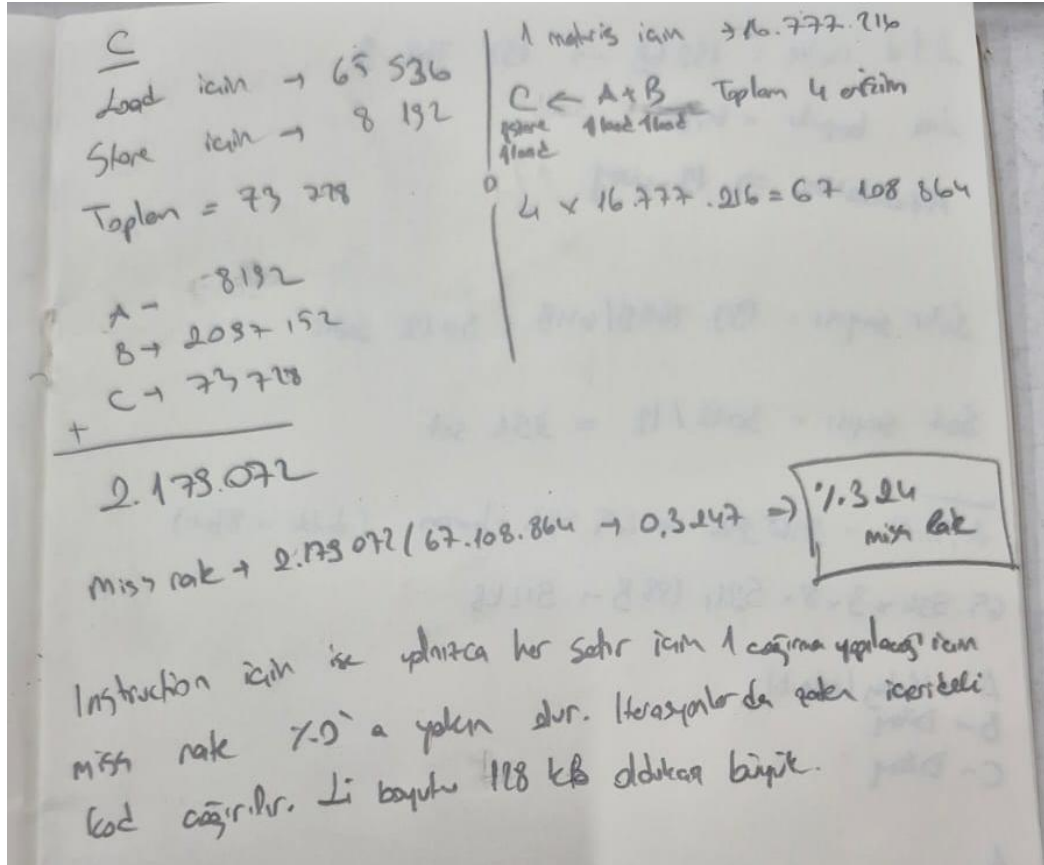 C
Load için → 65 536
Store için → 8 192
Toplam = 73 728
A → 8192
B → 2097 152
C → 73 728
+
2.179.072
1 matris için → 16.777.216
C ← A + B Toplam 4 erişim
1 store 1 load 1 load
1 load
4 x 16.777.216 = 67 108 864
miss rate → 2.179 072 / 67.108.864 → 0,3247 => %3.24
miss rate
Instruction için ise yalnızca her satır için 1 çağırma yapılacağı için
miss rate %0'a yakın olur. Iterasyonlarda zaten içerideki
kod çağırılır. Li boyutu 128 kB oldukça büyük.